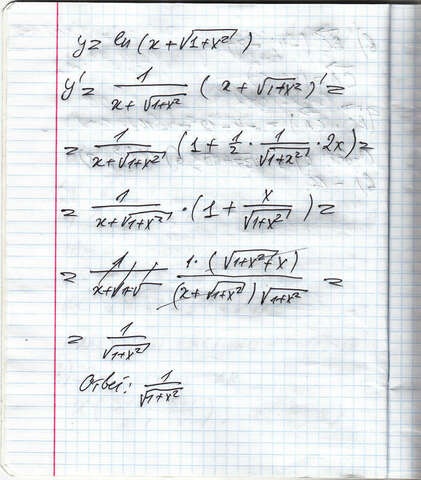 y = ln(x+√(1+x²))
y' = 1/(x+√(1+x²)) (x+√(1+x²))' =
= 1/(x+√(1+x²)) (1+1/2·1/√(1+x²)·2x) =
= 1/(x+√(1+x²)) ·(1+x/√(1+x²)) =
= 1·(√(1+x²)+x)/((x+√(1+x²))√(1+x²)) =
= 1/√(1+x²)
Ответ: 1/√(1+x²)